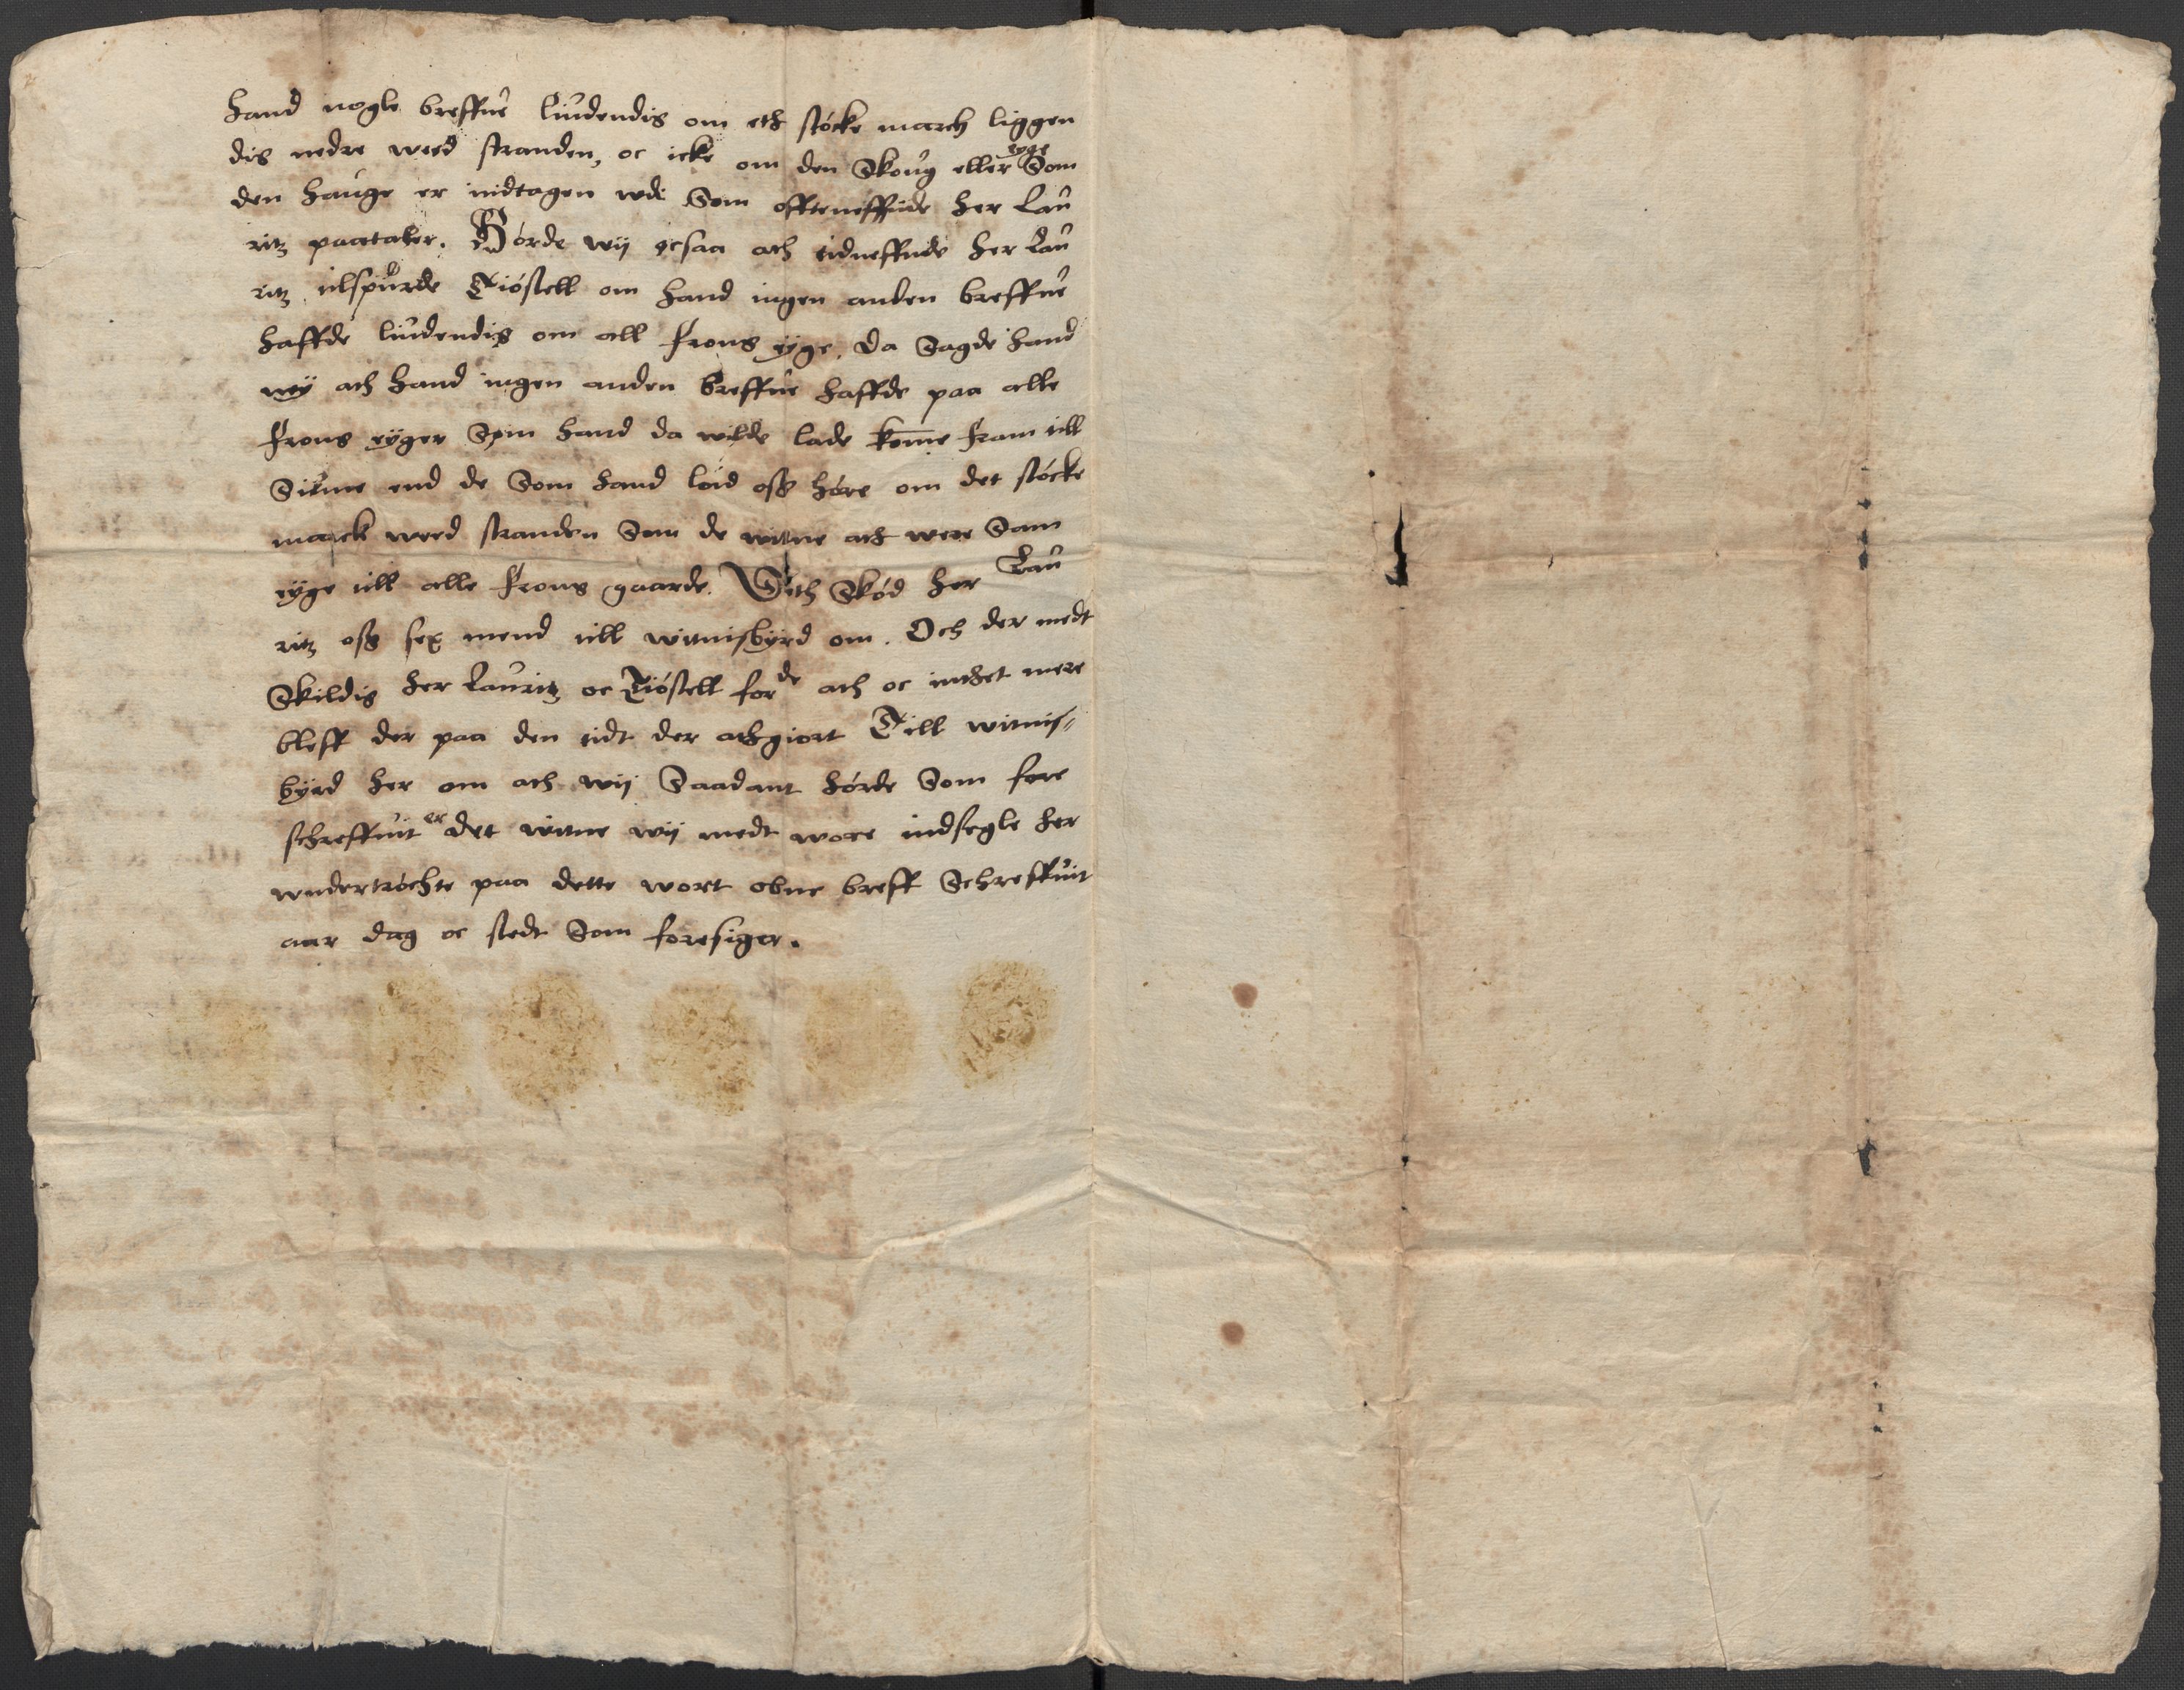 hand nogle breffue liudendis om eth støcke march liggen
dis nedre weed stranden, oc icke om den Skoug eller eyge Som
den hauge er indtagen wdi Som offteneffnde her Lau
ritz paataler. Hørde wij ocsaa ath tidneffnde her Lau
ritz tilspurde Kiøstell om hand ingen anden breffue
haffde liudendis om all Frons eyge, da Sagde hand
ney ath hand ingen anden breffue haffde paa alle
Frons eyger Som hand da wilde lade kome fram till
Siune end de Som hand loid oss høre om det støcke
marck weed stranden Som de witne ath were Sam
eyge till alle Frons gaarde. Veth Skød her Lau
ritz oss sex mend till witnisbyrd om. Och der medt
Skildis her Lauritz oc Kiøstell forde ath oc inthet mere
bleff der paa den tidt der athgiort Till witnis-
byrd her om ath wij Saadant hørde Som fore
schreffuit er det witne wij medt wore indsegle her
wndertrøchte paa dette wort obne breff Schreffuit
aar dag oc stedt Som foresiger.